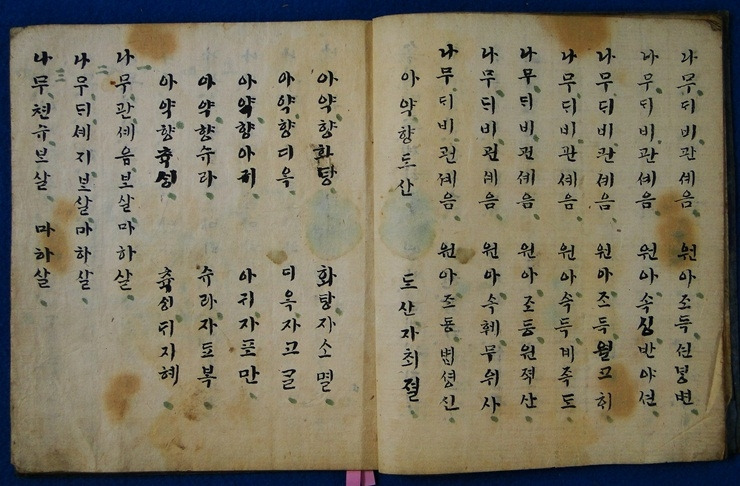 나무ᄃᆡ비관셰음 원아조득션녕변
나무ᄃᆡ비관셰음 원아속싱반야션
나무ᄃᆡ비관셰음 원아조득월고ᄒᆡ
나무ᄃᆡ비관셰음 원아속득계족도
나무ᄃᆡ비관셰음 원아조등원젹산
나무ᄃᆡ비관셰음 원아속훼무위사
나무ᄃᆡ비관셰음 원아조동법셩신
아약향도산 도산자최졀
아약향화탕 화탕자소멸
아약향디옥 디옥자고골
아약향아귀 아귀자포만
아약향슈라 슈라자됴복
아약향츅성 츅성ᄃᆡ지혜
나무관셰음보살마하살 一
나무ᄃᆡ셰지보살마하살 二
나무쳔슈보살 마하살 三